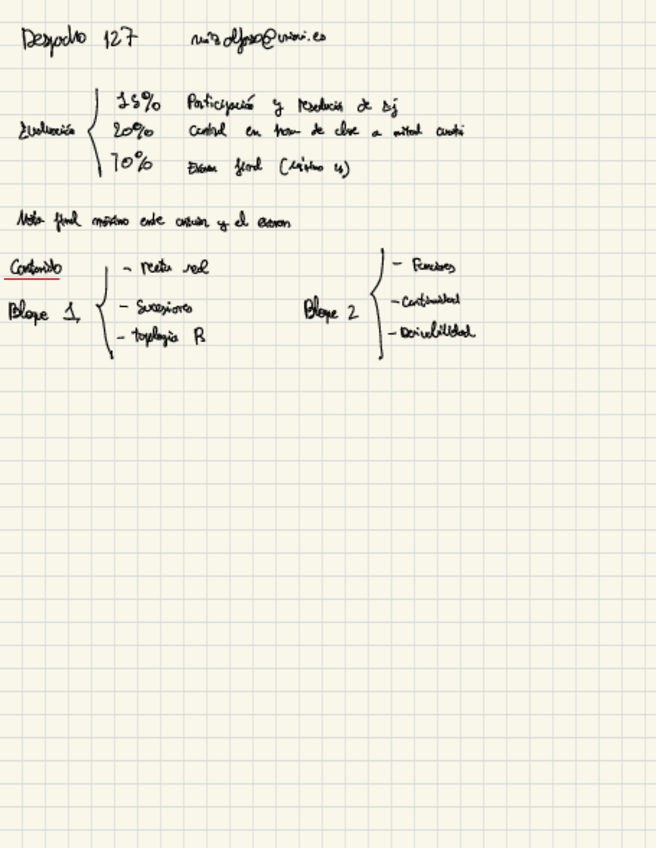 Despacho 127
Evaluación
15% Participación y resolución de ej
20% control en hora de clase a mitad cuatri
70% Examen final (mínimo 4)
Nota final máximo entre y el examen
Contenido
Bloque 1
- recta real
- Sucesiones
- topología R
Bloque 2
- Funciones
- Continuidad
- Derivabilidad